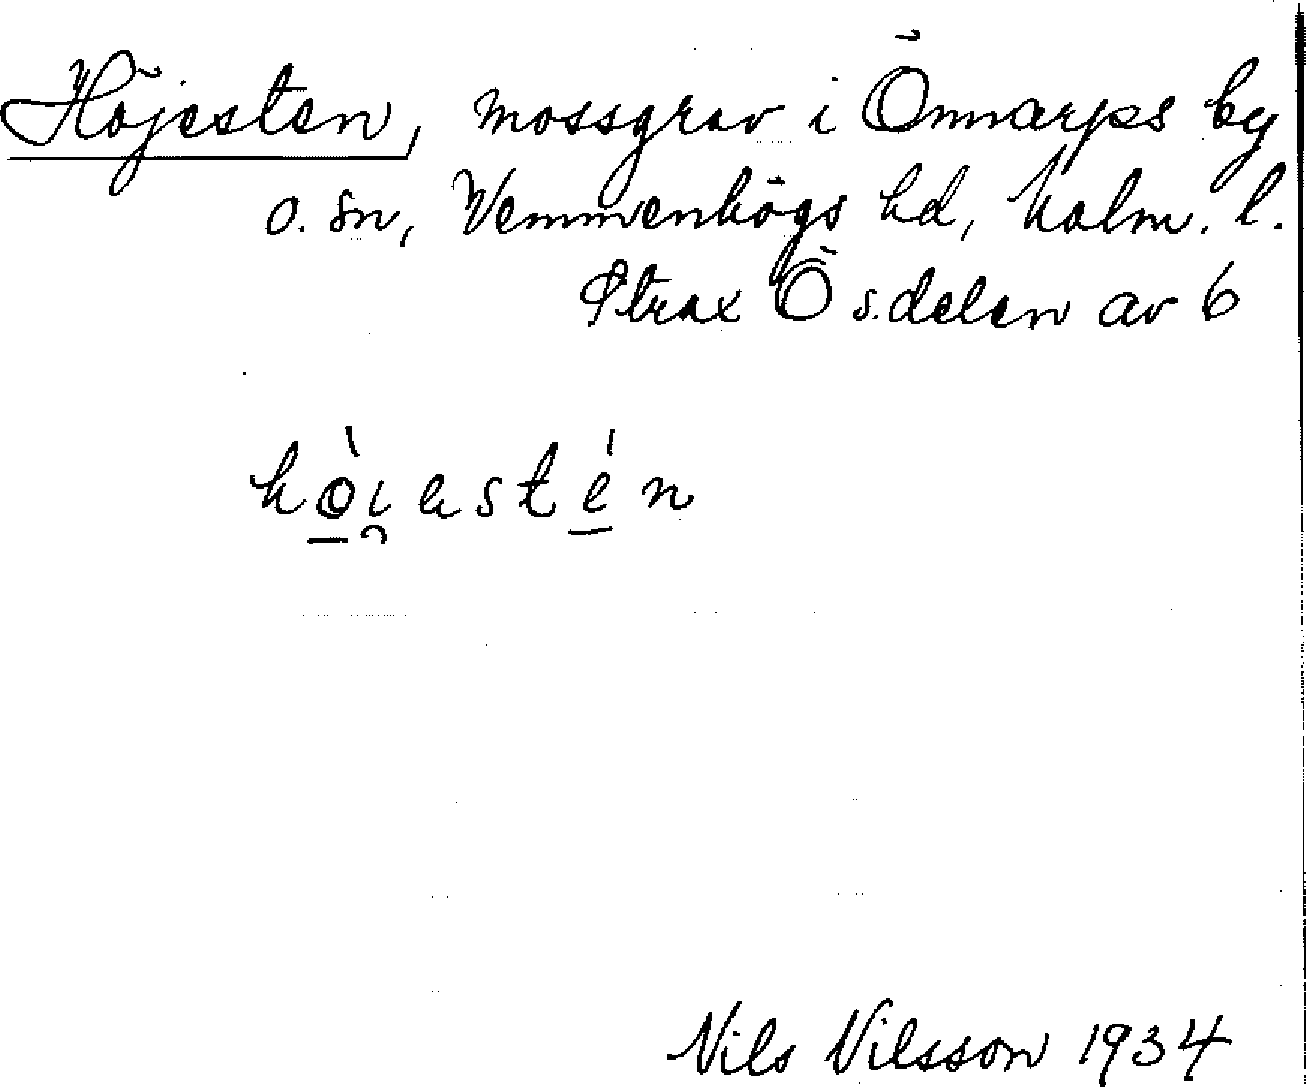 Höjesten, mossgrav i Önnarps by
o. sn, Vemmenhögs hd, Malm. l.
Strax Ö s.delen av 6
hòi̯astén
Nils Nilsson 1934